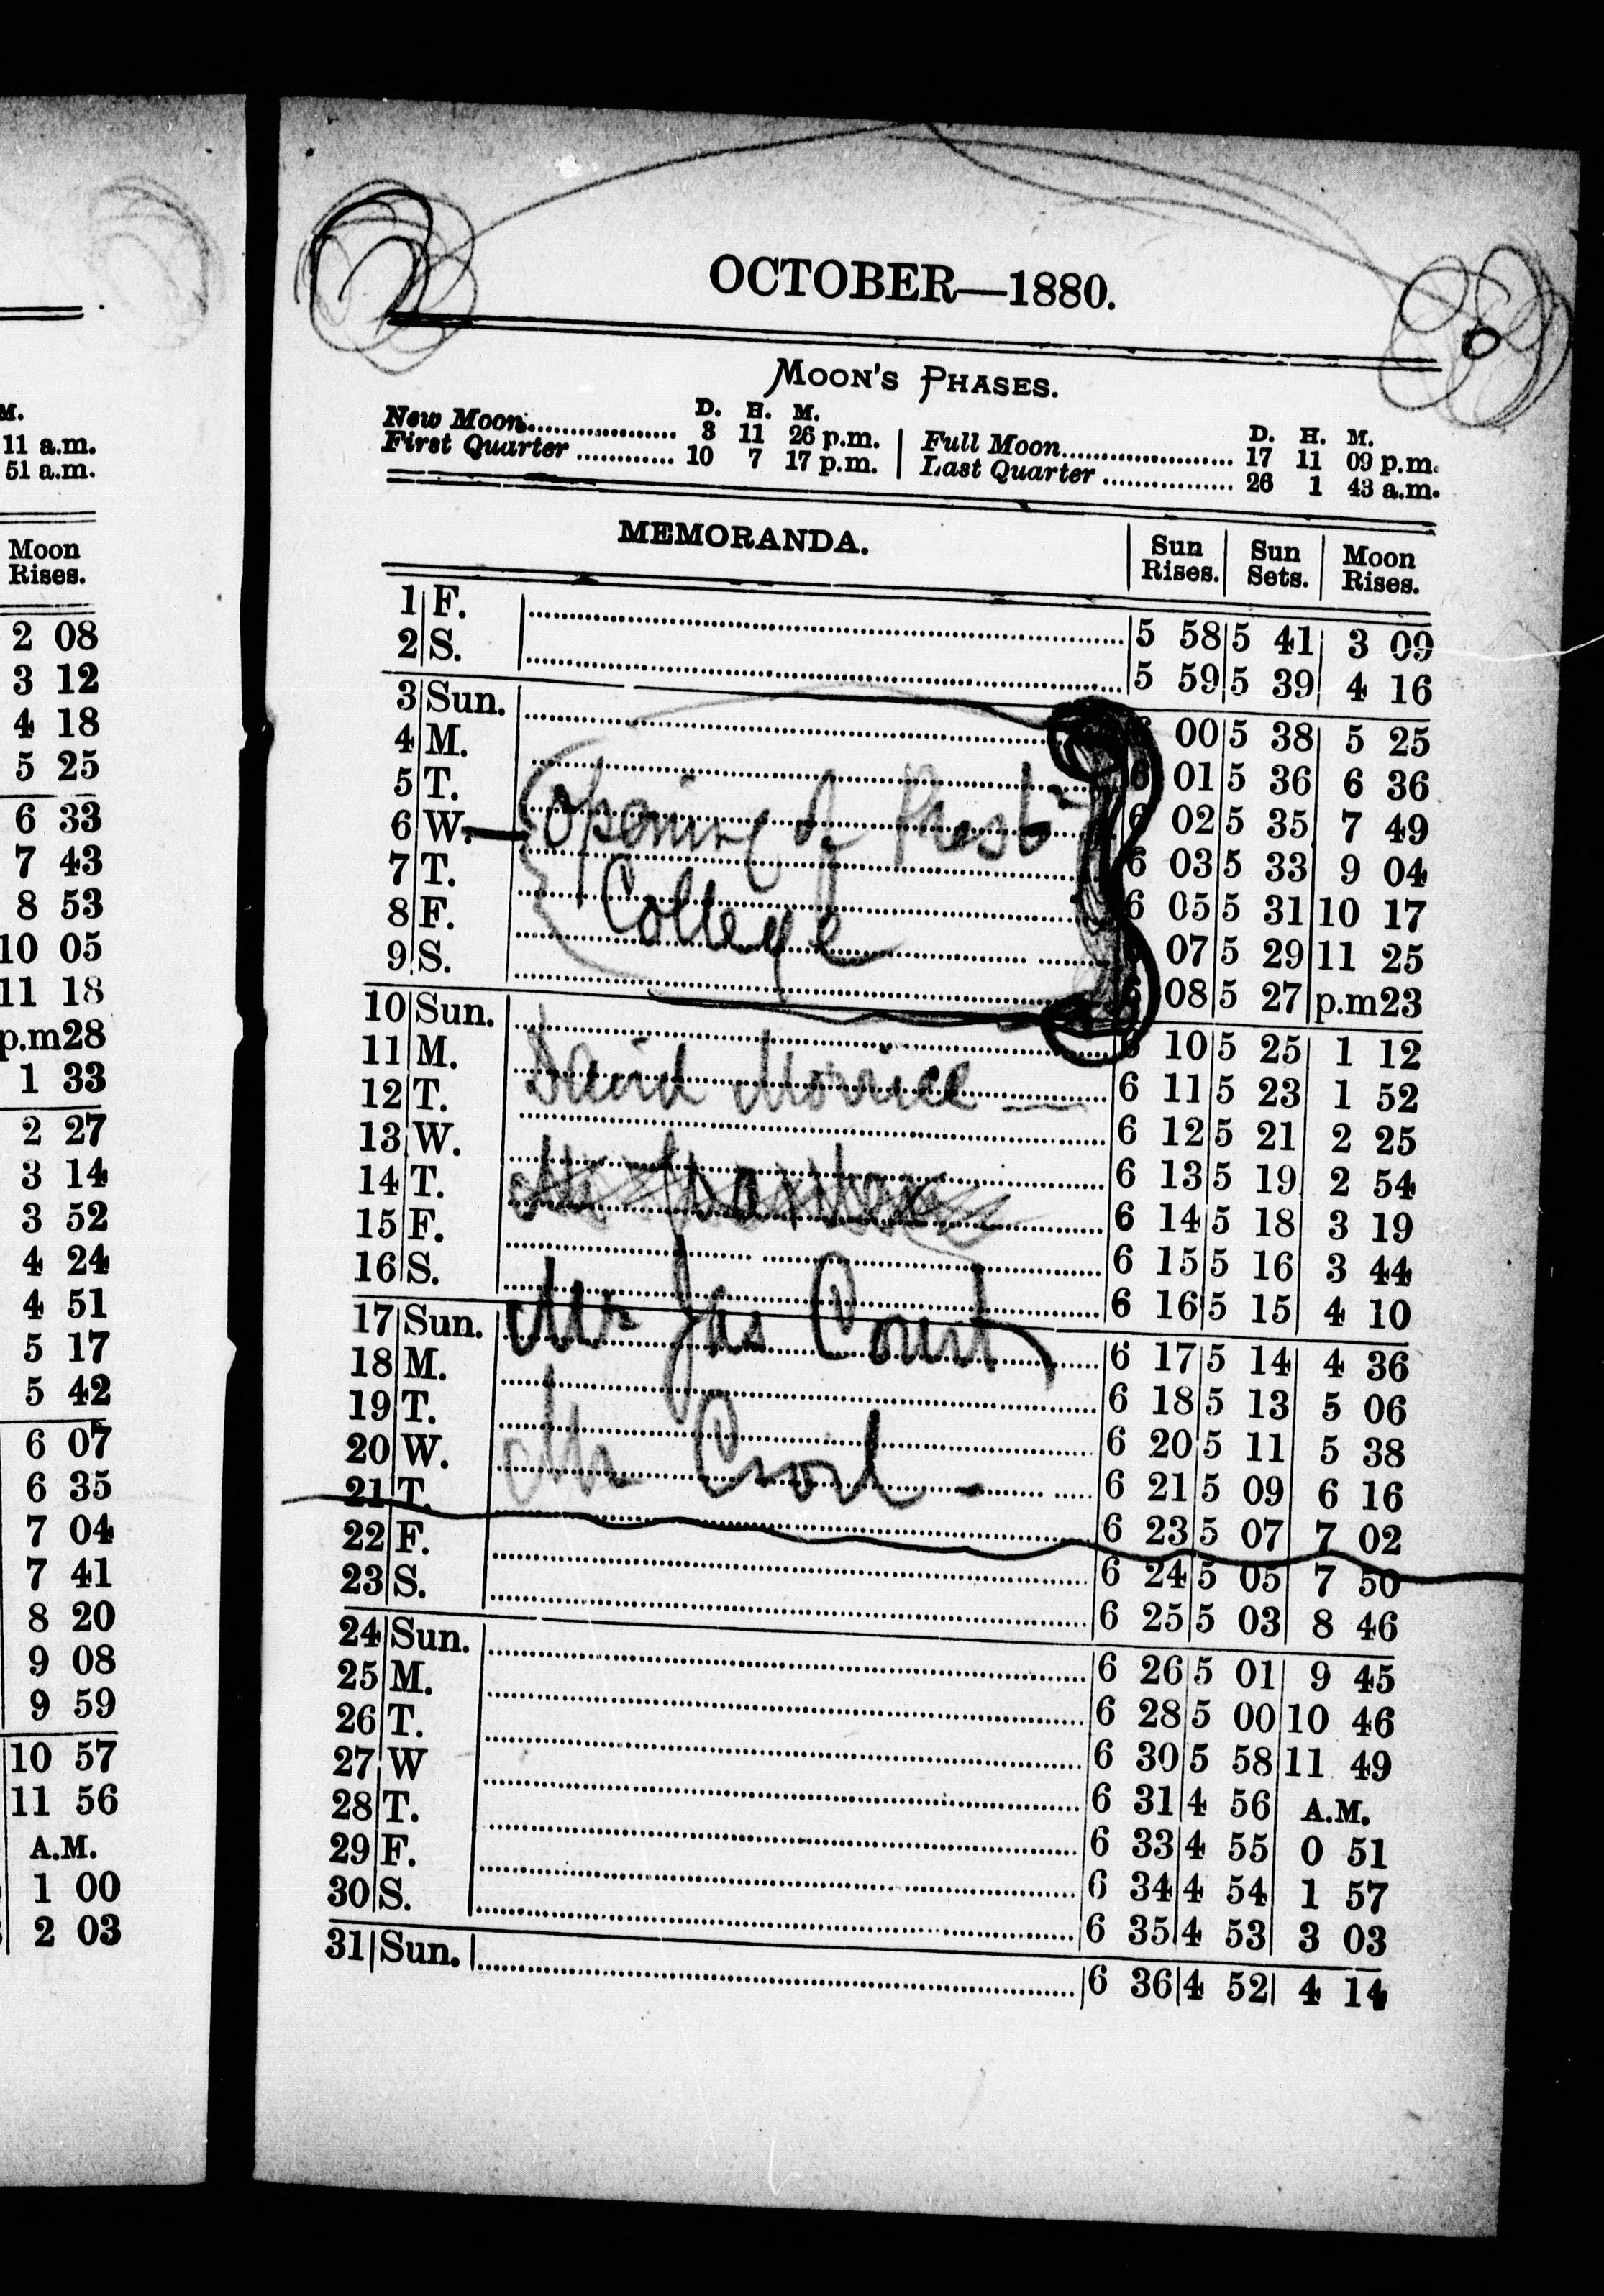 M.
11 a.m.
51 a.m.
Moon
Rises.
2 08
3 12
4 18
5 25
6 33
7 43
8 53
10 05
11 18
p.m28
1 33
2 27
3 14
3 52
4 24
4 51
5 17
5 42
6 07
6 35
7 04
7 41
8 20
9 08
9 59
10 57
11 56
A.M.
1 00
2 03
OCTOBER—1880.
MOON'S PHASES.
D. H. M.
New Moon.................. 3 11 26 p.m.
First Quarter ............ 10 7 17 p.m.
D. H. M.
Full Moon...................... 17 11 09 p.m.
Last Quarter ................ 26 1 43 a.m.
MEMORANDA. Sun Rises. Sun Sets. Moon Rises.
1 F. 5 58 5 41 3 09
2 S. 5 59 5 39 4 16
3 Sun. 6 00 5 38 5 25
4 M. 6 01 5 36 6 36
5 T. 6 02 5 35 7 49
6 W. 6 03 5 33 9 04
7 T. 6 05 5 31 10 17
8 F. 6 07 5 29 11 25
9 S. 6 08 5 27 p.m23
Opening of Presb
College
10 Sun. 6 10 5 25 1 12
11 M. 6 11 5 23 1 52
12 T. 6 12 5 21 2 25
13 W. 6 13 5 19 2 54
14 T. 6 14 5 18 3 19
15 F. 6 15 5 16 3 44
16 S. 6 16 5 15 4 10
David Morrice
17 Sun. 6 17 5 14 4 36
18 M. 6 18 5 13 5 06
19 T. 6 20 5 11 5 38
20 W. 6 21 5 09 6 16
21 T. 6 23 5 07 7 02
22 F. 6 24 5 05 7 50
23 S. 6 25 5 03 8 46
Mr Jas Court
Mr Croil
24 Sun. 6 26 5 01 9 45
25 M. 6 28 5 00 10 46
26 T. 6 30 5 58 11 49
27 W 6 31 4 56 A.M.
28 T. 6 33 4 55 0 51
29 F. 6 34 4 54 1 57
30 S. 6 35 4 53 3 03
31 Sun. 6 36 4 52 4 14